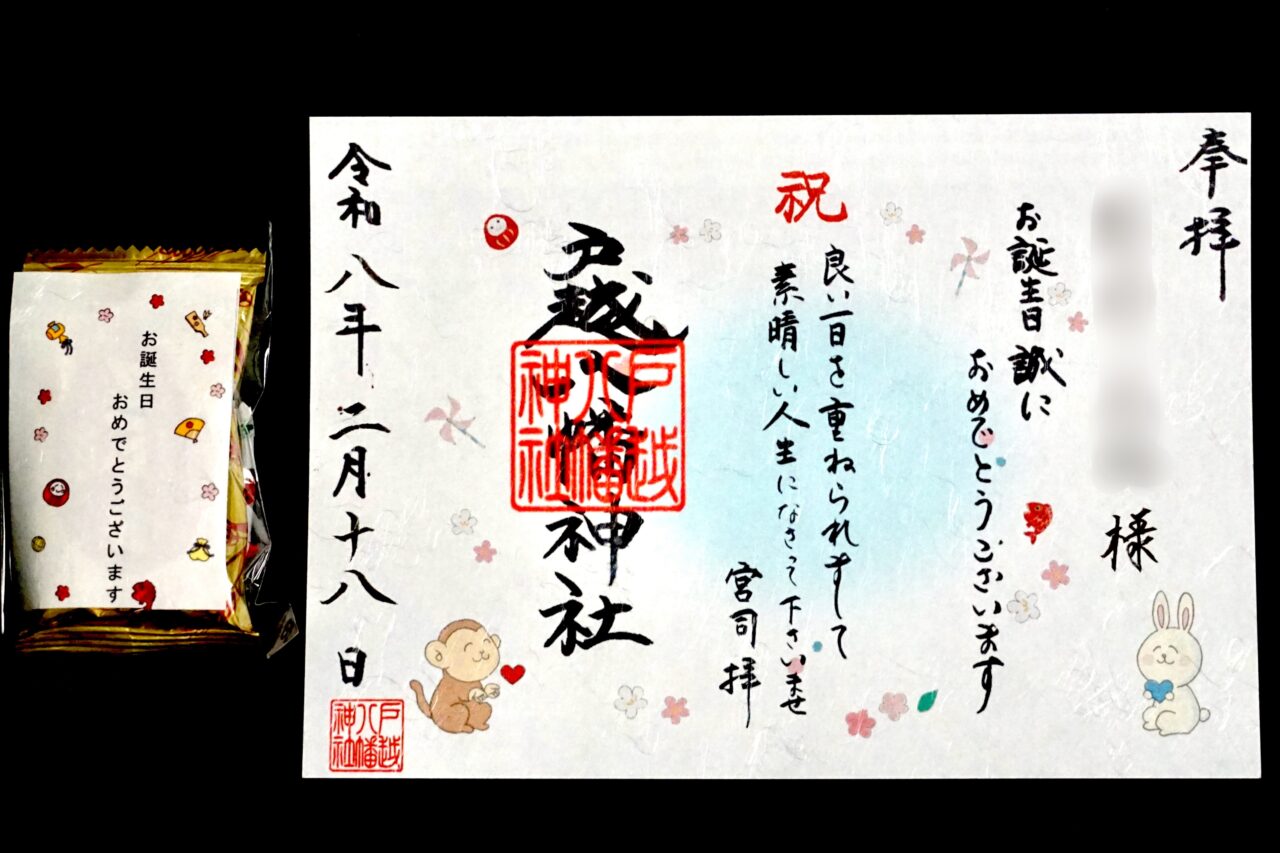 奉拝
様
お誕生日誠に
おめでとうございます
祝
良い一日を重ねられまして
素晴しい人生になさって下さいませ
宮司拝
戸越八幡神社
戸越
八幡
神社
令和八年二月十八日
戸越
八幡
神社
お誕生日
おめでとうございます